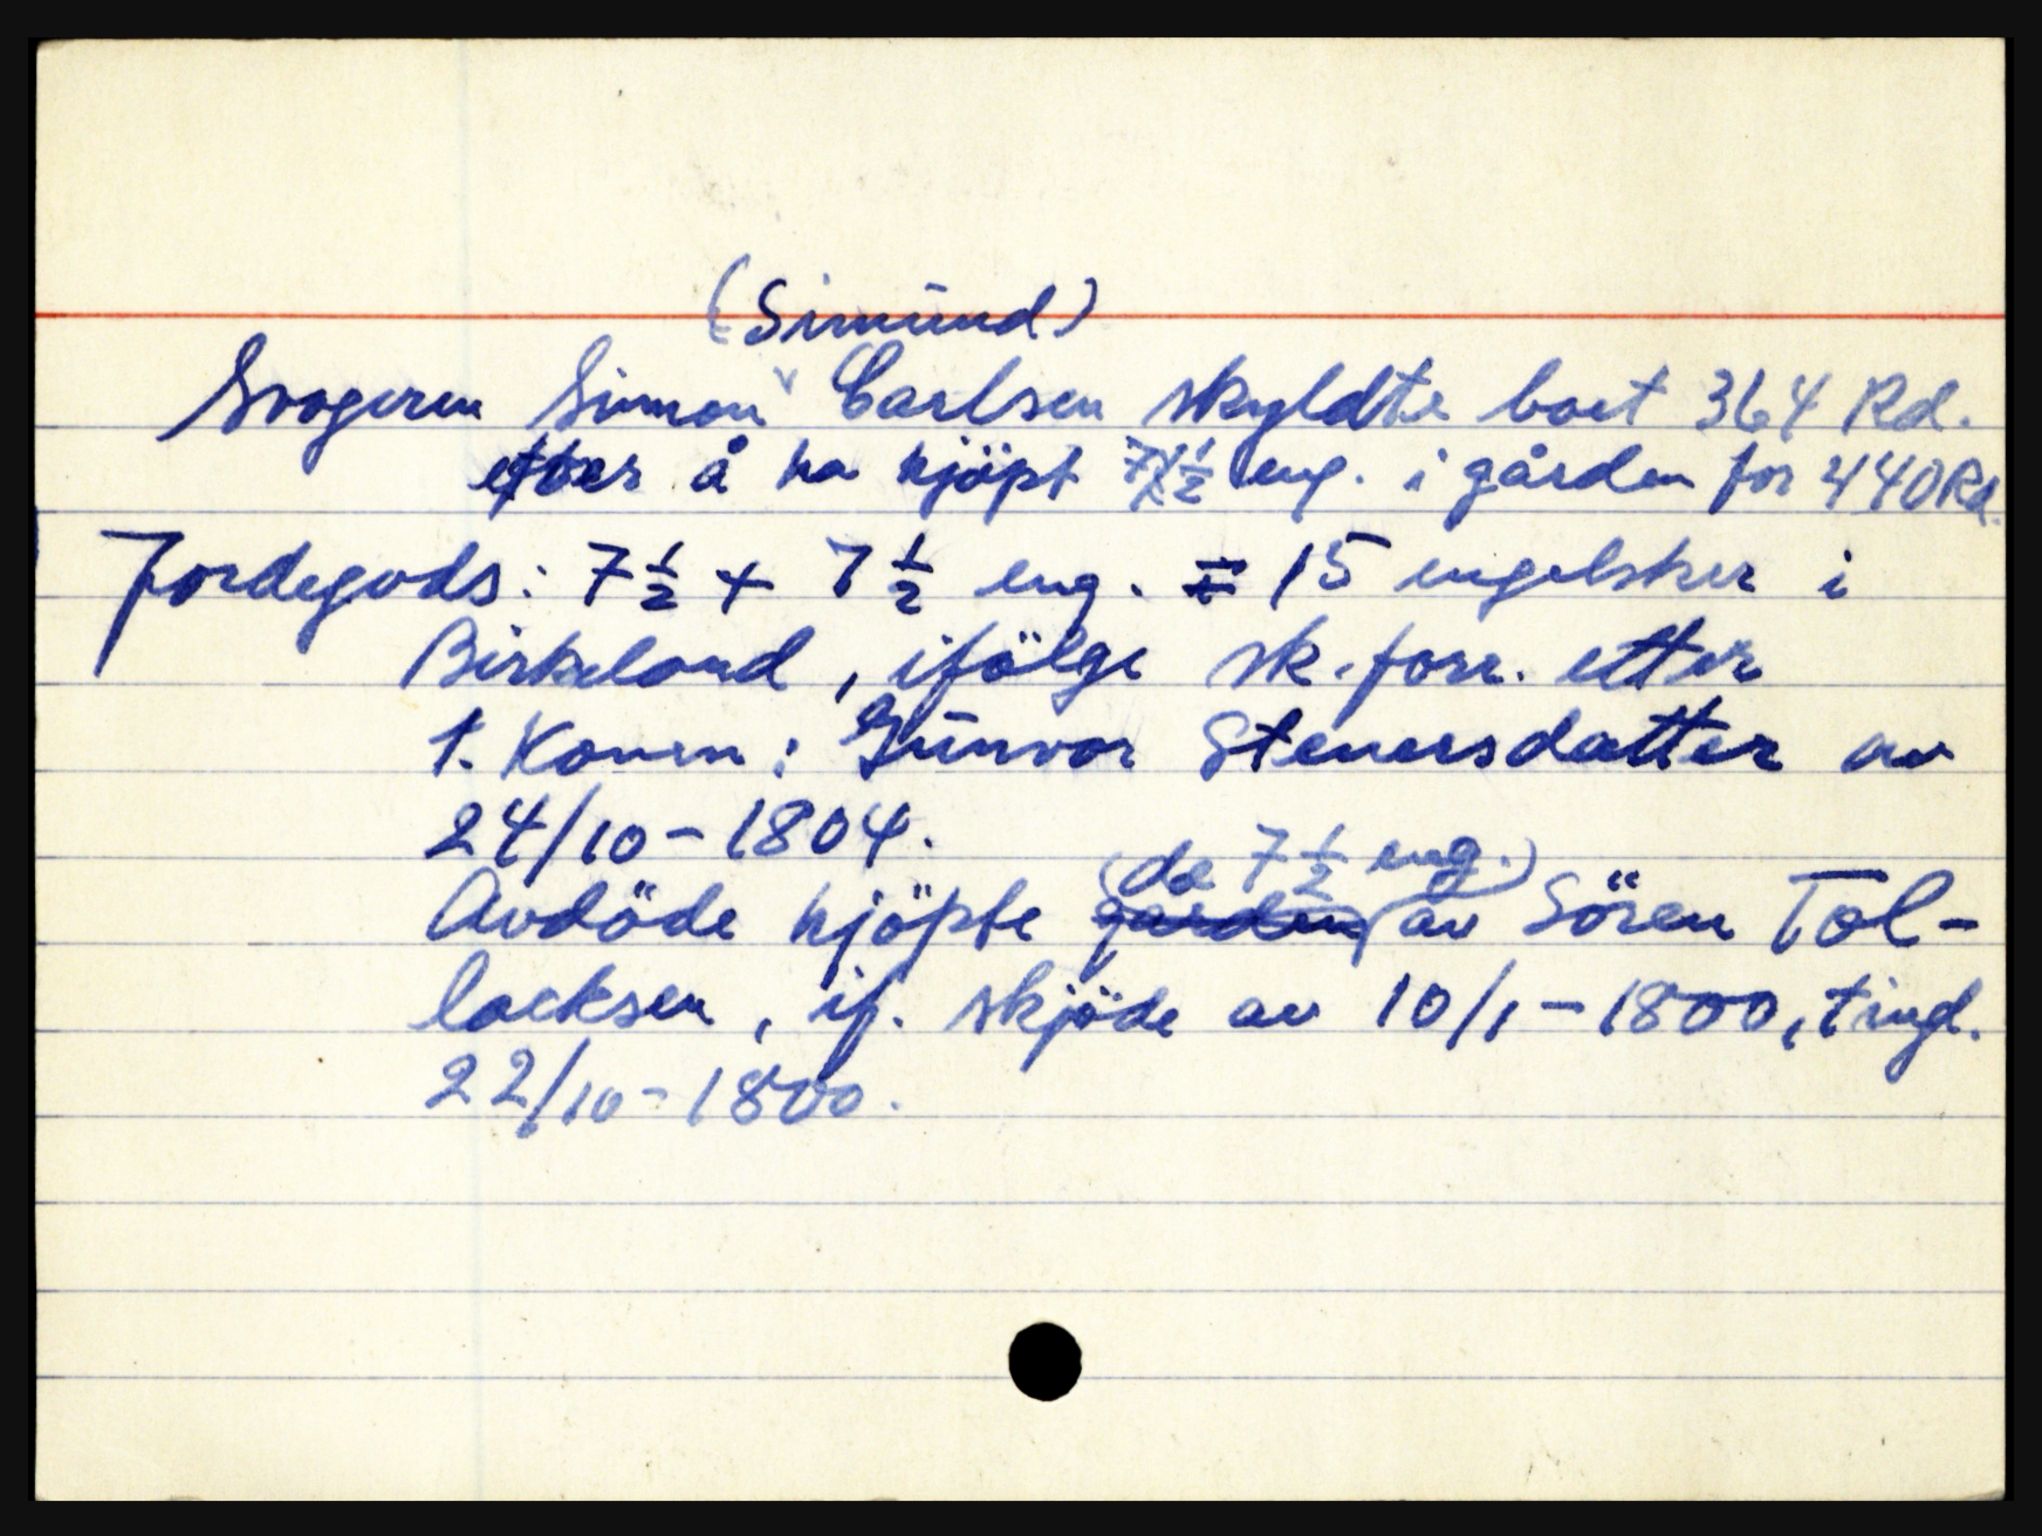 (Simund)
Svogeren Simon Carlsen skyldte boet 364 Rd.
etter å ha kjöpt 7½ eng. i gården for 440 Rd.
Jordegods: 7½ + 7½ eng. = 15 engelsker i
Birkeland, ifölge sk.forr. etter
1. Konen: Gunvor Stenersdatter av
24/10-1804.
(de 7½ eng.)
Avdöde kjöpte gården av Sören Tol-
lacksen, if. skjöde av 10/1-1800, tingl.
22/10-1800.